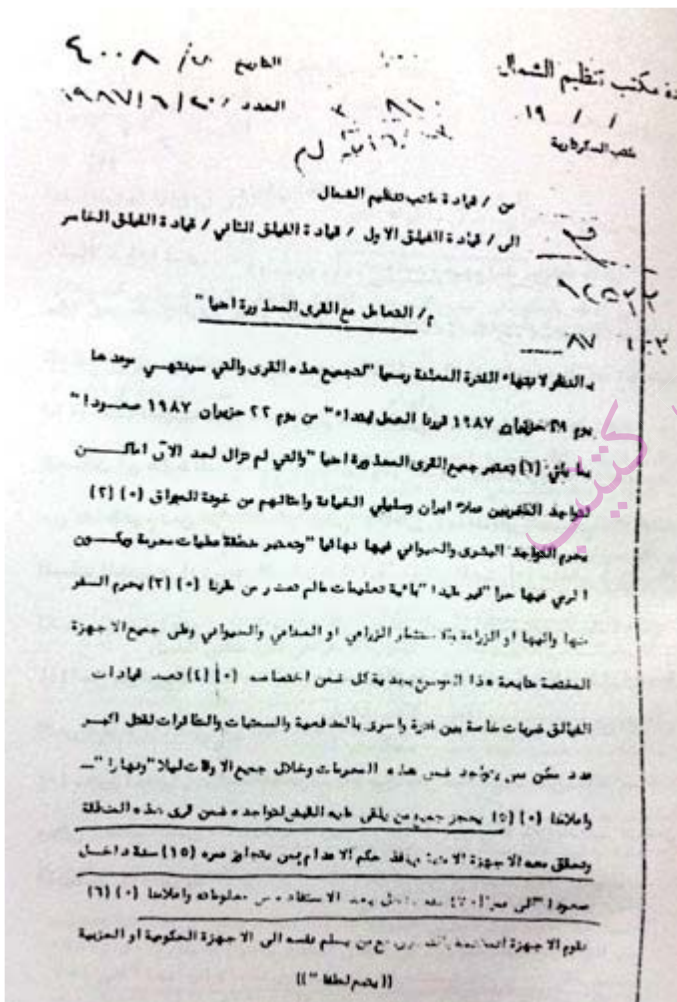 مكتب تنظيم الشمال
التاريخ / ٤٠٠٨
العدد / ٢٠ / ٦ / ١٩٨٧
/ / ١٩
مكتب السكرتارية
من / قيادة مكتب تنظيم الشمال
الى / قيادة الفيلق الاول / قيادة الفيلق الثاني / قيادة الفيلق الخامس
م / التعامل مع القرى المحذورة امنيا "
بالنظر لانتهاء الفترة المعلنة رسميا "لتجميع هذه القرى والتي سينتهي موعدها
يوم حزيران ١٩٨٧ قررنا العمل ابتداء" من يوم ٢٢ حزيران ١٩٨٧ صعودا"
بما يلي (١) تعتبر جميع القرى المحذورة امنيا "والتي لم تزال لحد الآن اماكن
لتواجد المخربين عملاء ايران وسليلي الخيانة وامثالهم من خونة العراق (٠) (٢)
يحرم التواجد البشرى والحيواني فيها نهائيا "وتعتبر منطقة عمليات محرمة ويكون
الرمي فيها حرا "غير مقيدا "باية تعليمات مالم تصدر من طرفنا (٠) (٣) يحرم السفر
منها واليها او الزراعة والاستثمار الزراعي او الصناعي والحيواني وعلى جميع الاجهزة
المختصة متابعة هذا الموضوع بجدية كل ضمن اختصاصه (٠) (٤) تعد قيادات
الفيالق ضربات خاصة بين فترة واخرى بالمدفعية والسمتيات والطائرات لقتل اكبر
عدد ممكن ممن يتواجد ضمن هذه المحرمات وخلال جميع الاوقات ليلا "ونهارا "
واعلامنا (٠) (٥) يحجز جميع من يلقى عليه القبض لتواجده ضمن قرى هذه المنطقة
وتحقق معه الاجهزة الامنية وينفذ حكم الاعدام بمن يتجاوز عمره (١٥) سنة داخل
صعودا "الى عمر (٧٠) سنة داخل بعد الاستفادة من معلوماته واعلامنا (٠) (٦)
تقوم الاجهزة المختصة بالتحقيق مع من يسلم نفسه الى الاجهزة الحكومية او الحزبية
(( يتبع لطفا "))